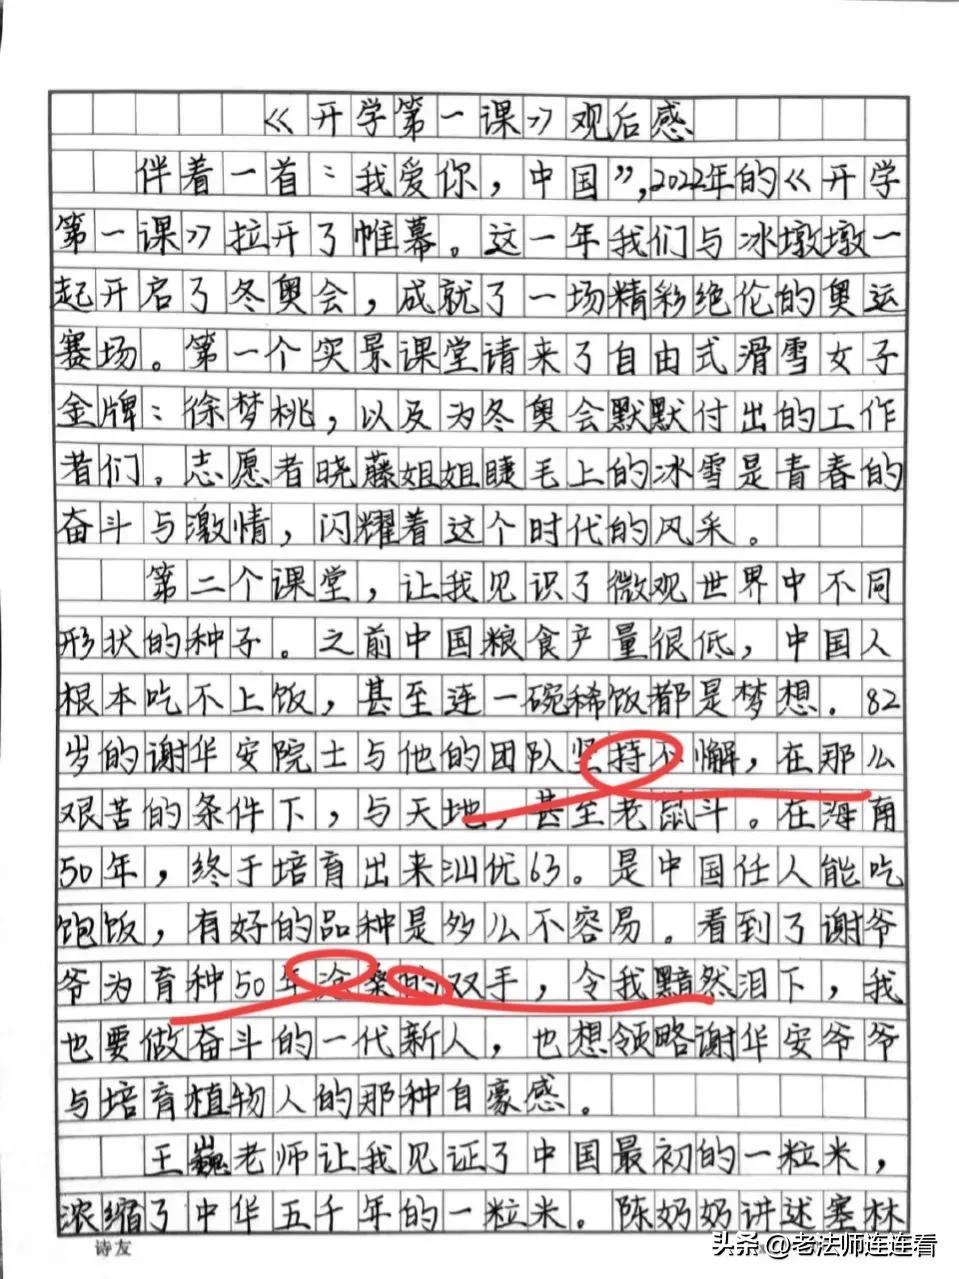 《开学第一课》观后感
伴着一首：我爱你，中国”，2022年的《开学
第一课》拉开了帷幕。这一年我们与冰墩墩一
起开启了冬奥会，成就了一场精彩绝伦的奥运
赛场。第一个实景课堂请来了自由式滑雪女子
金牌：徐梦桃，以及为冬奥会默默付出的工作
者们。志愿者晓藤姐姐睫毛上的冰雪是青春的
奋斗与激情，闪耀着这个时代的风采。
第二个课堂，让我见识了微观世界中不同
形状的种子。之前中国粮食产量很低，中国人
根本吃不上饭，甚至连一碗稀饭都是梦想．82
岁的谢华安院士与他的团队坚持不懈，在那么
艰苦的条件下，与天地，甚至老鼠斗。在海南
50年，终于培育出来汕优63。是中国任人能吃
饱饭，有好的品种是多么不容易。看到了谢爷
爷为育种50年沧桑的双手，令我黯然泪下，我
也要做奋斗的一代新人，也想领略谢华安爷爷
与培育植物人的那种自豪感。
王巍老师让我见证了中国最初的一粒米，
浓缩了中华五千年的一粒米。陈奶奶讲述塞林
诗友
头条@老法师连连看